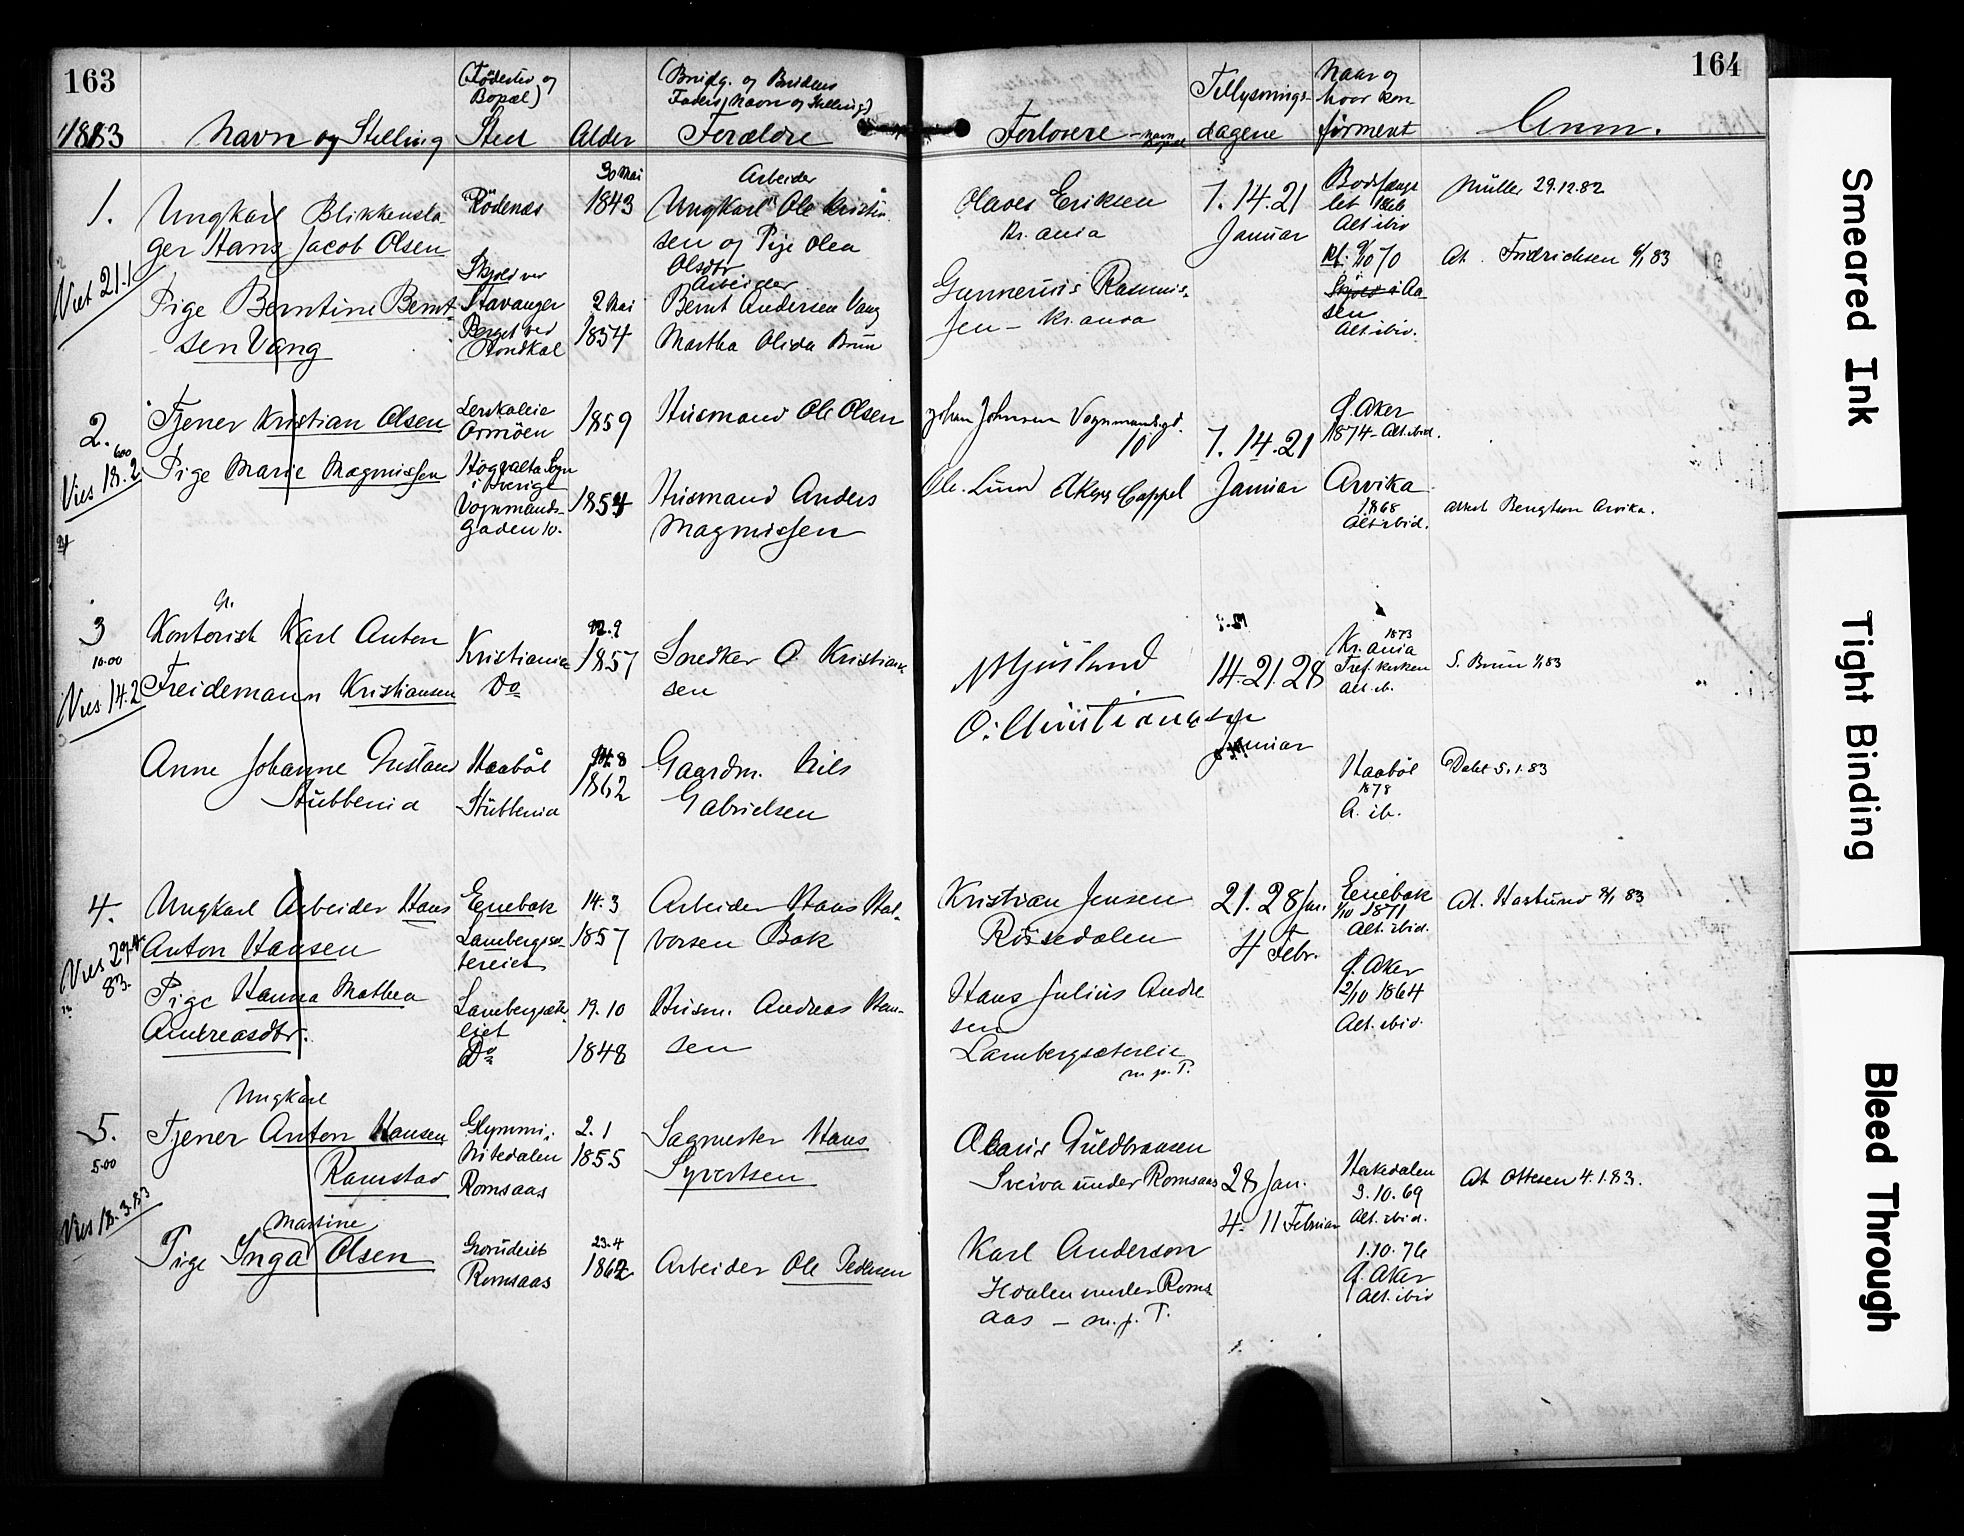 163
164
1883
Navn og Stilling
(Födested og
Bopæl)
Sted
Alder
(Brudg. og Brudens
Faders Navn og Stilling)
Forældre
Forlovere - Navn
Bopæl
Tillysnings-
dagene
Naar og
hvor kon
firment
Anm.
1.
Viet 21.1
Ungkarl Blikkensla
ger Hans Jacob Olsen
Rödenæs
30 Mai
1843
Arbeider
Ungkarl Ole Kristia
sen og Pige Olea
Olsdtr
Olaves Eriksen
Kr.ania
7. 14. 21
Januar
Bodsfænge
let 1866
Alt ibid
Müller 29.12.82
Pige Berntine Bernt
sen Vang
Skjold ved
Stavanger
Berget ved
2 Mai
1854
Arbeider
Bernt Andersen Vang
Martha Olida Brun
Gunnerius Rasmus-
sen - Kr.ania
Kf. 9/10 70
Aa
sen
Alt. ibid.
At. Fridrichsen 6/1 83
2.
600
Vies 18.2
Tjener Kristian Olsen
Ormöen
1859
Husmand Ole Olsen
Johan Johnsen Vognmandsgd.
10
7. 14. 21
Januar
Ø. Aker
1874 - Alt. ibid.
Pige Marie Magnussen
Högvalta Sogn
i Sverige
Vognmands-
gaden 10.
1854
Husmand Anders
Magnussen
Ole Lund Akers Cappel
Arvika
1868
Alt ibid.
Attest Bengtson Arvika.
3
10.00
Vies 14.2
Kontorist Karl Anton
Freidemann Kristiansen
Kristiania
Do
12.9
1857
Snedker O Kristian
sen
N Mjöslund
O. Christiansen
14. 21. 28
Januar
1873
Kr.ania
Tref. kirken
alt. ib.
S. Brun 3/1 83
Anne Johanne Gustava
Stubberud
Haaböl
Stubberud
14.8
1862
Gaardm. Nils
Gabrielsen
Haaböl
1878
A. ib.
Dalet 5.1.83
4.
Vies 29.4
83.
Ungkarl Arbeider Hans
Anton Hansen
Enebak
Lambergsæ
tereiet
14.3
1857
Arbeider Hans Hal-
vorsen Bak
Kristian Jensen
Rösedalen
21. 28 Jan.
4 Febr.
Enebak
1/10 1871
Alt. ibid.
At. Hastund 8/1 83
Pige Hanna Mathea
Andreasdtr.
Lambergsæter
eiet
Do
19.10
1848
Husm. Andreas Han-
sen
Hans Julius Andre
sen
Lambergsætereie
m. p. P.
Ø. Aker
2/10 1864
Alt. ibid.
5.
5.00
Vies 18.3.83
Ungkarl
Tjener Anton Hansen
Ramstad
Glymmi,
Nitedalen
Romsaas
2.1
1855
Sagmester Hans
Syvertsen
Olaus Guldbransen
Sveiva under Romsaas
28 Jan.
4. 11 Februar
Hakedalen
3.10.69
Alt. ibid.
At Ottesen 4.1.83.
Martine
Pige Inga Olsen
Groruderiet
Romsaas
23.4
1862
Arbeider Ole Pedersen
Karl Anderson
Hvalen under Roms
aas - m. p. P.
1.10.76
Ø. Aker
Alt. ibid
Smeared Ink
Tight Binding
Bleed Through